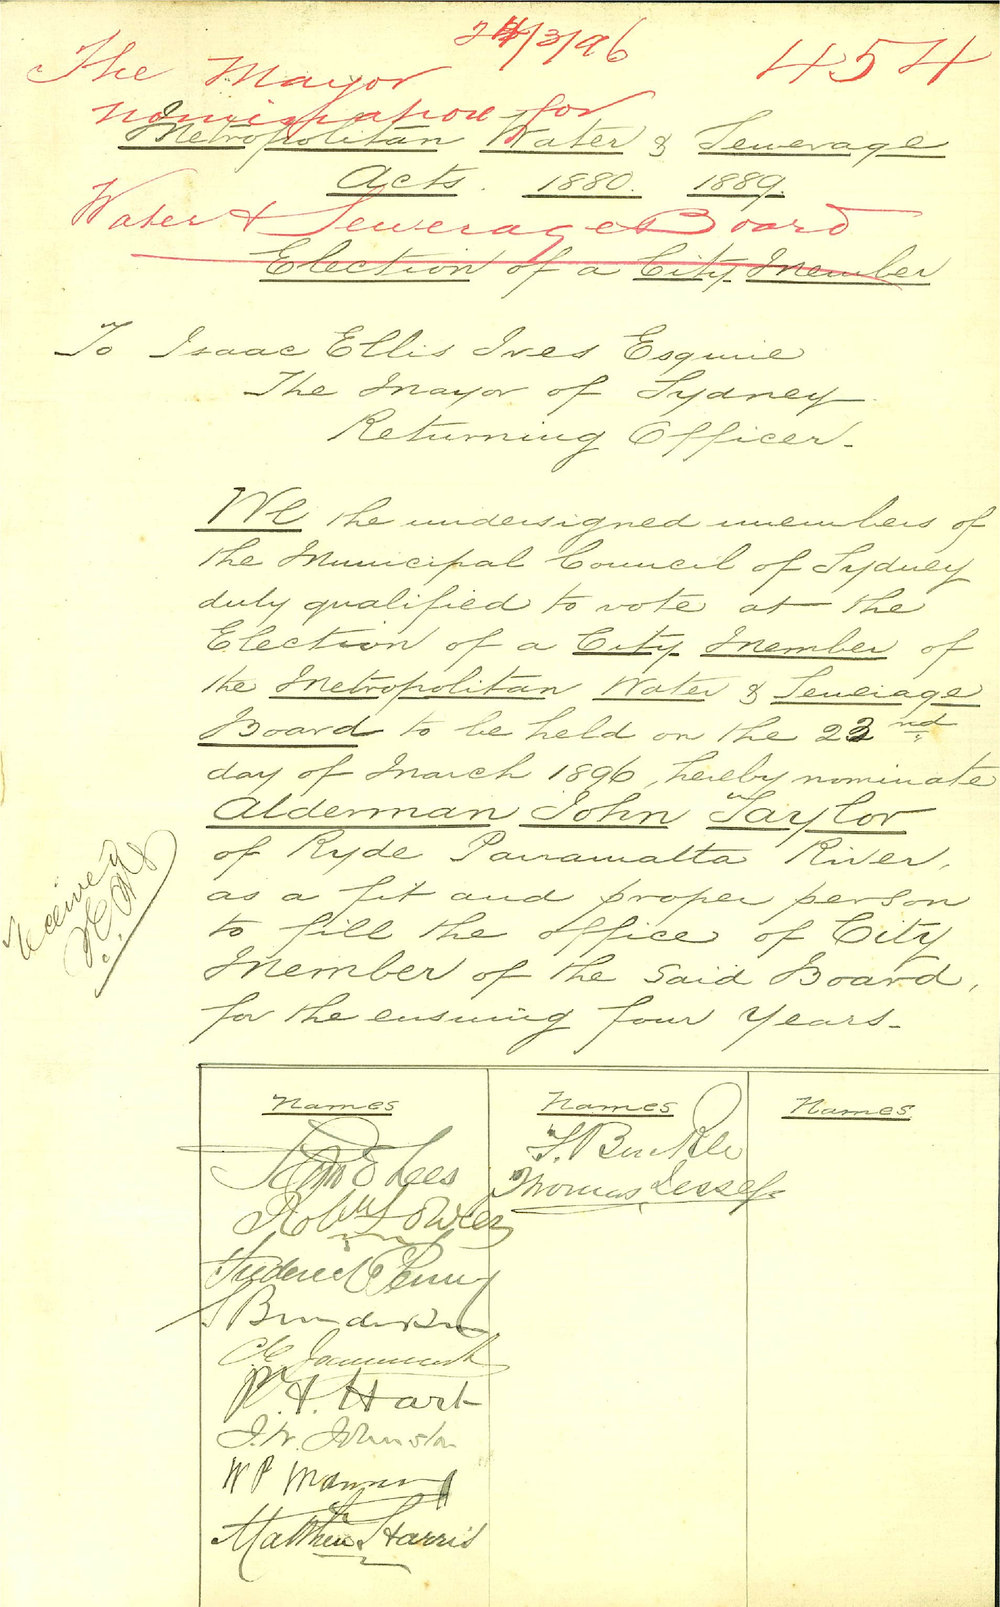 24/3/96
454
The Mayor
Nomination for
Metropolitan Water & Sewerage
Acts. 1880. 1889.
Water & Sewerage Board
Election of a City Member
To Isaac Ellis Ives Esquire
The Mayor of Sydney
Returning Officer.
We the undersigned members of
the Municipal Council of Sydney
duly qualified to vote at the
Election of a City Member of
the Metropolitan Water & Sewerage
Board to be held on the 23nd
day of March 1896, hereby nominate
Alderman John Taylor
of Ryde Parramatta River,
as a fit and proper person
to fill the office of City
Member of the said Board,
for the ensuing four years.
Received
Names
Lees
Robt Fowler
Frederick Penny
P. A. Hart
J. W. Johnston
W P Manning
Matthew Harris
Names
T. Buckle
Thomas
Names